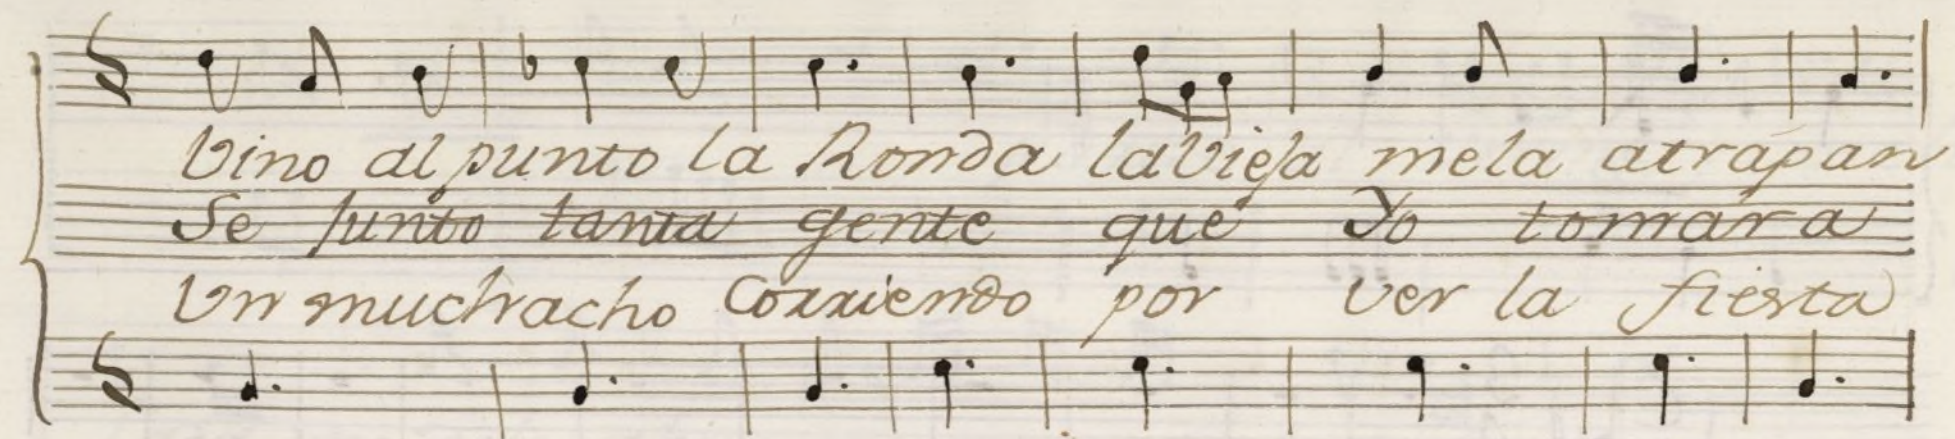 Vino al punto la Ronda la Vieja me la atrápan
Se junto tanta gente que Yo tomára
Un muchacho Corriendo por ver la fiesta